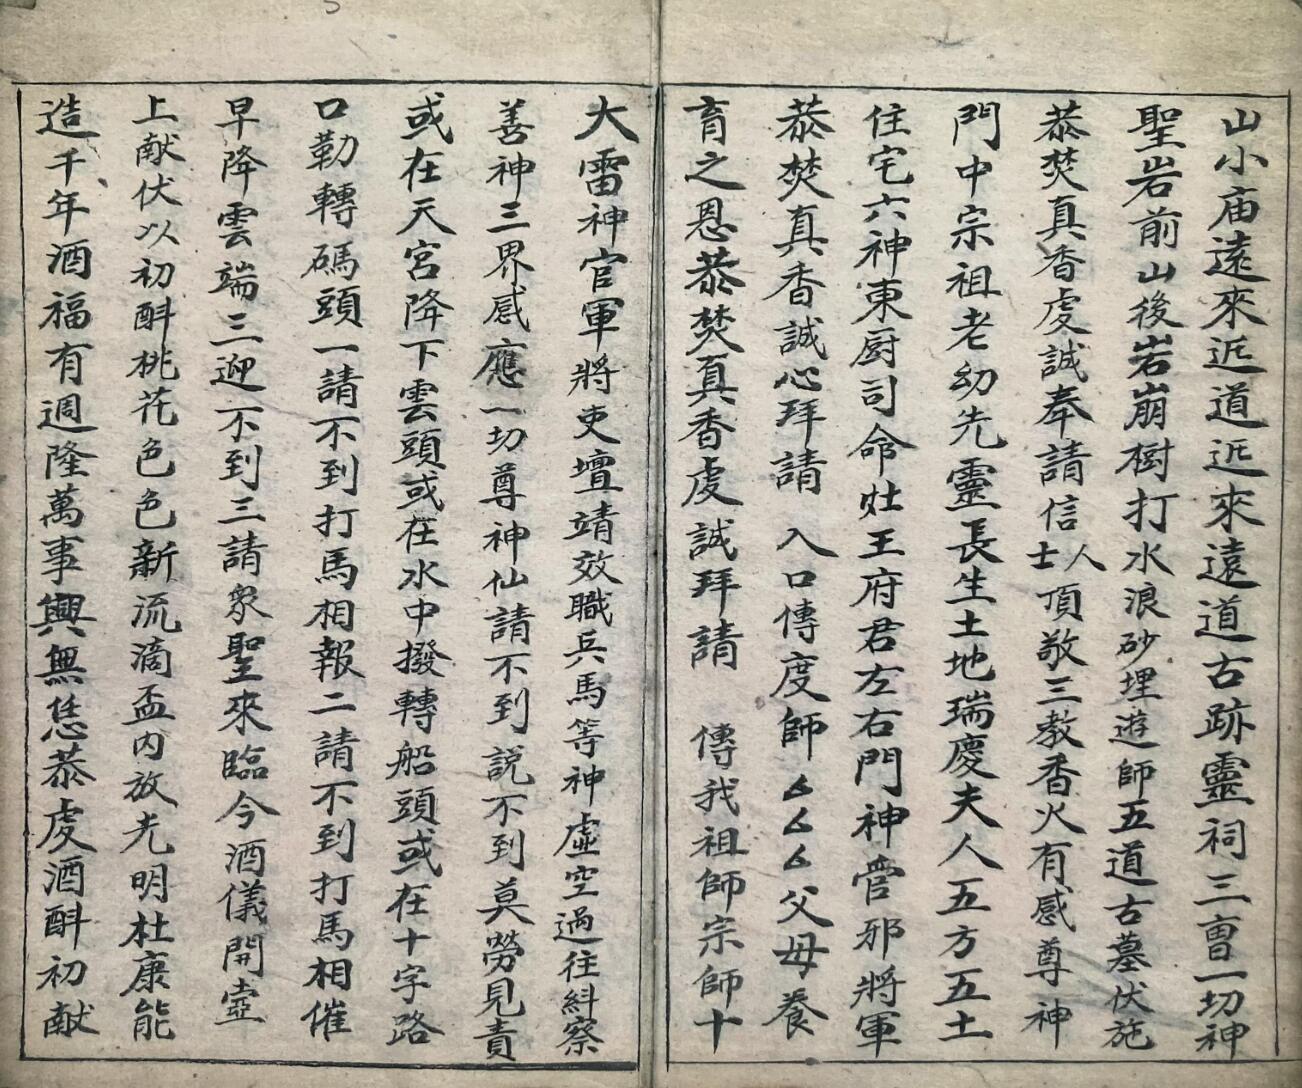 山小庙遠來近道近來遠道古跡靈祠三曹一切神
聖岩前山後岩崩樹打水浪砂埋遊師五道古墓伏施
恭焚真香虔誠奉請信士人頂敬三教香火有感尊神
門中宗祖老幼先靈長生土地瑞慶夫人五方五土
住宅六神東厨司命灶王府君左右門神管邪將軍
恭焚真香誠心拜請 入口傳度師厶厶厶父母養
育之恩恭焚真香虔誠拜請 傳我祖師宗師十
大雷神官軍將吏壇靖效職兵馬等神虛空過往糾察
善神三界感應一切尊神仙請不到說不到莫勞見責
或在天宮降下雲頭或在水中撥轉船頭或在十字路
口勒轉碼頭一請不到打馬相報二請不到打馬相催
早降雲端三迎不到三請衆聖來臨今酒儀開壺
上献伏以初斟桃花色色新流滴盃内放光明杜康能
造千年酒福有週隆萬事興無恁恭虔酒斟初献